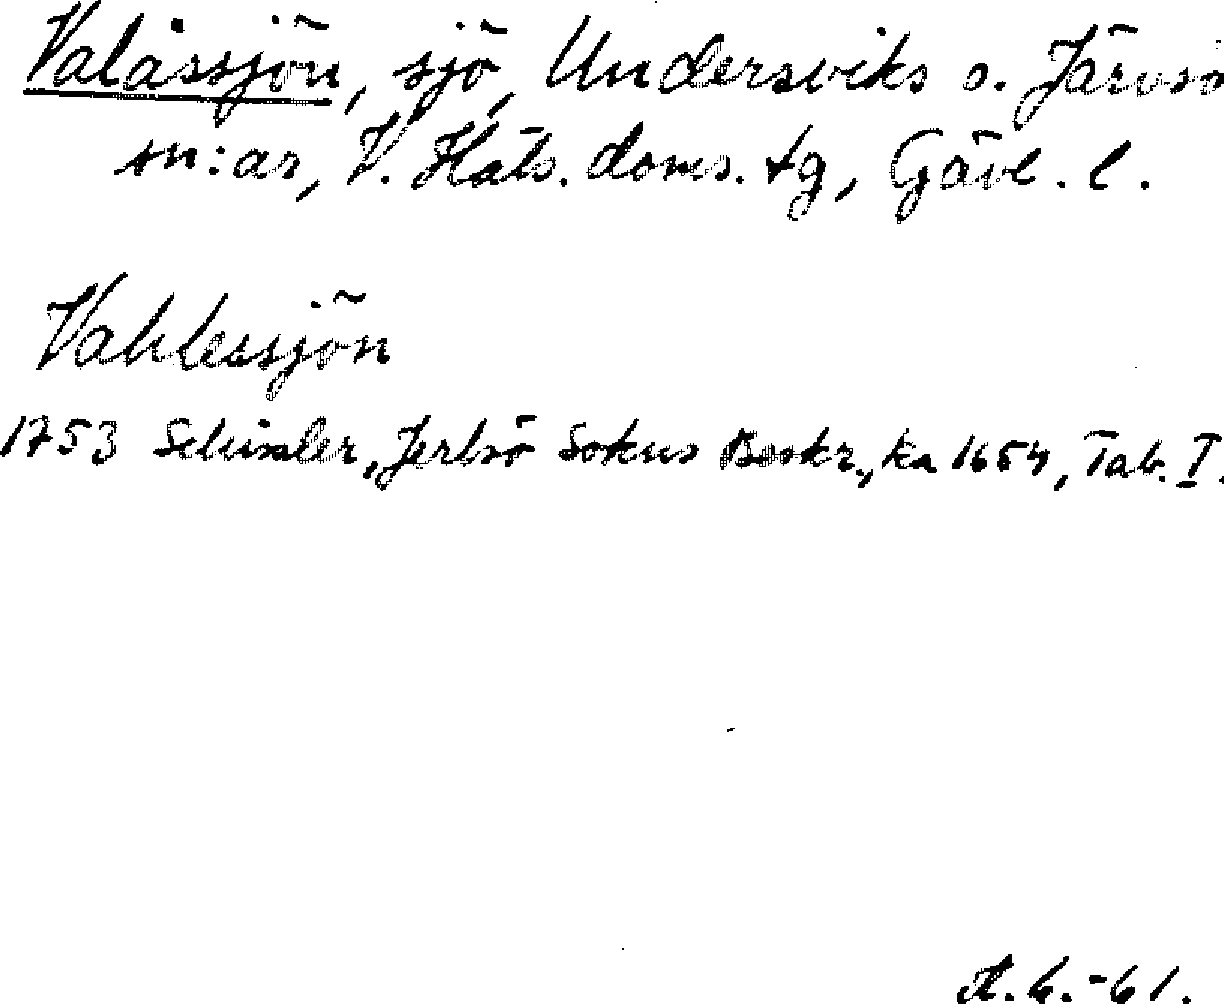 Valåssjön, sjö, Undersviks o. Järvsö
sn:ar, V. Häls. doms. tg, Gävl. l.
Vahlessjön
1753 Schissler, Jerlsö Sokns Beskr., ka 1654, Tab. I.
-61.